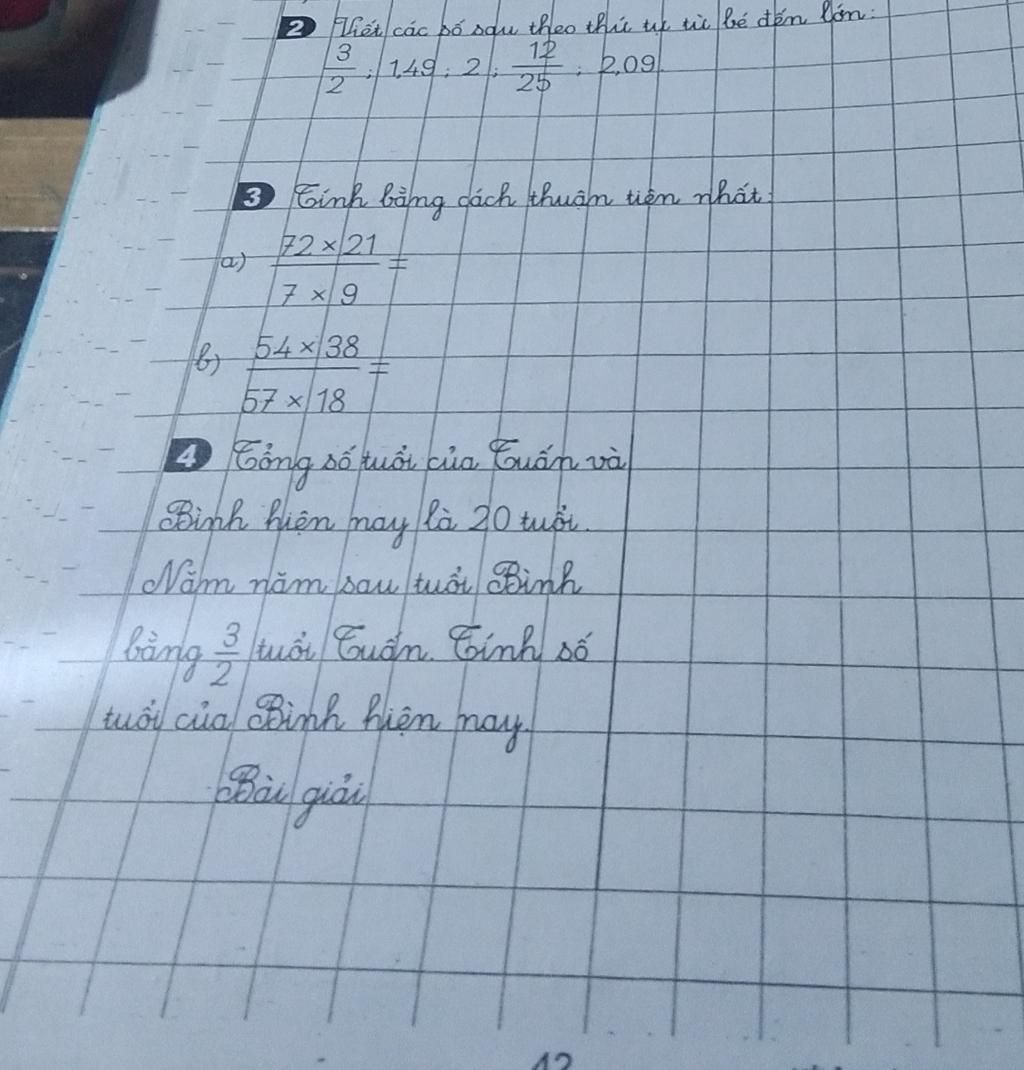 2 Viết các số sau theo thứ tự từ bé đến lớn:
3/2 ; 1,49 ; 2 ; 12/25 ; 2,09
3 Tính bằng cách thuận tiện nhất:
a) 72 × 21 / 7 × 9 =
b) 54 × 38 / 57 × 18 =
4 Tổng số tuổi của Tuấn và
Bình hiện nay là 20 tuổi.
Năm năm sau tuổi Bình
bằng 3/2 tuổi Tuấn. Tính số
tuổi của Bình hiện nay.
Bài giải